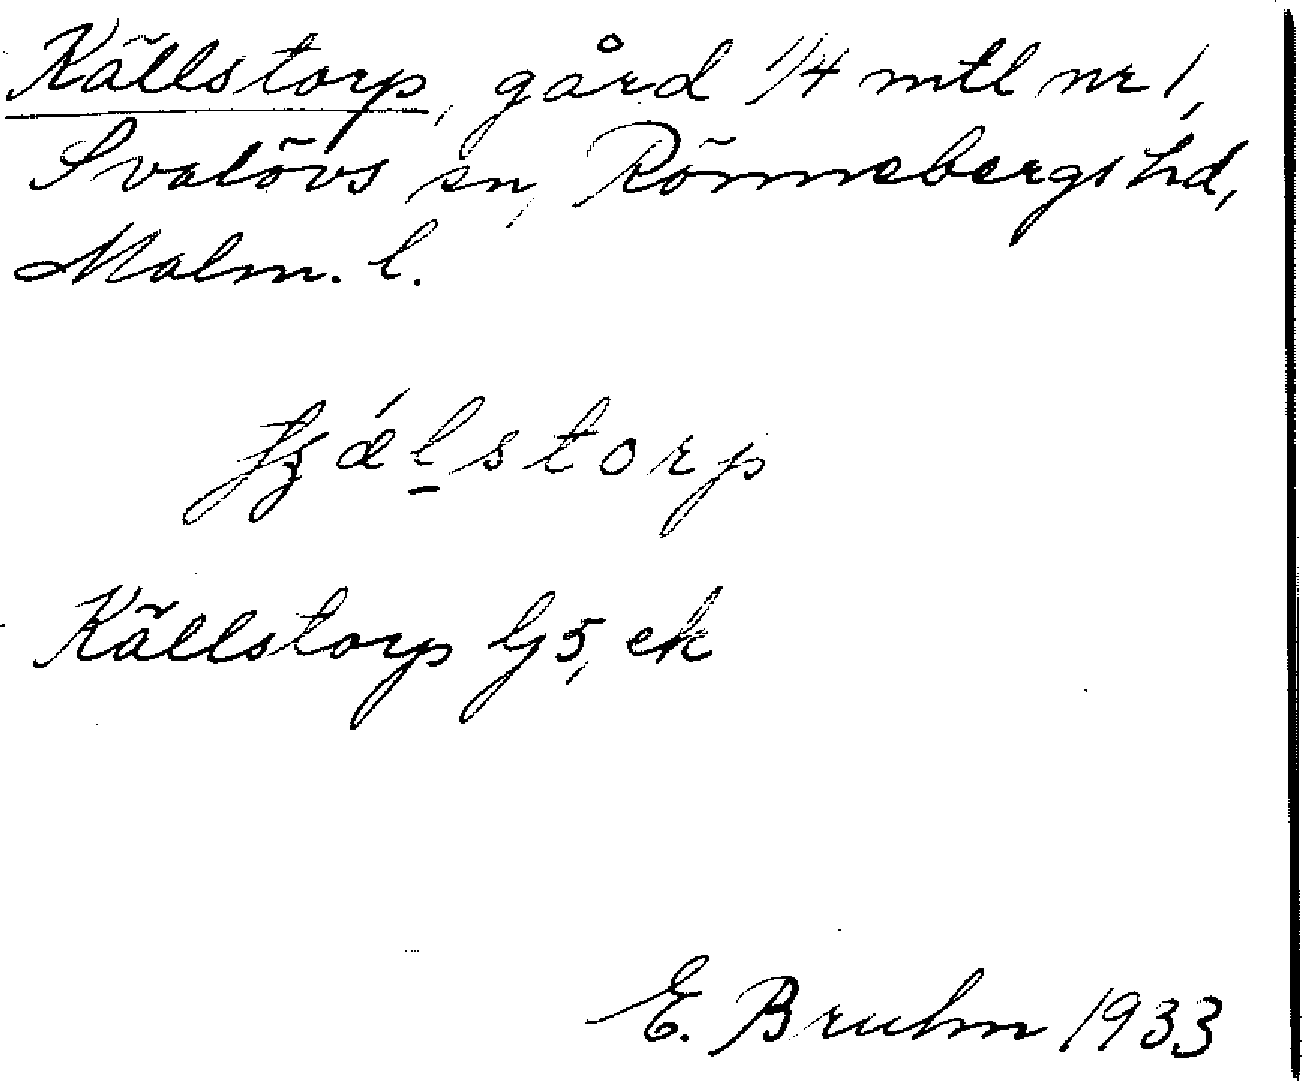 Källstorp, gård 1/4 mtl nr 1,
Svalövs sn, Rönnebergs hd,
Malm. l.
Källstorp Gj 5, ek
E. Bruhn 1933